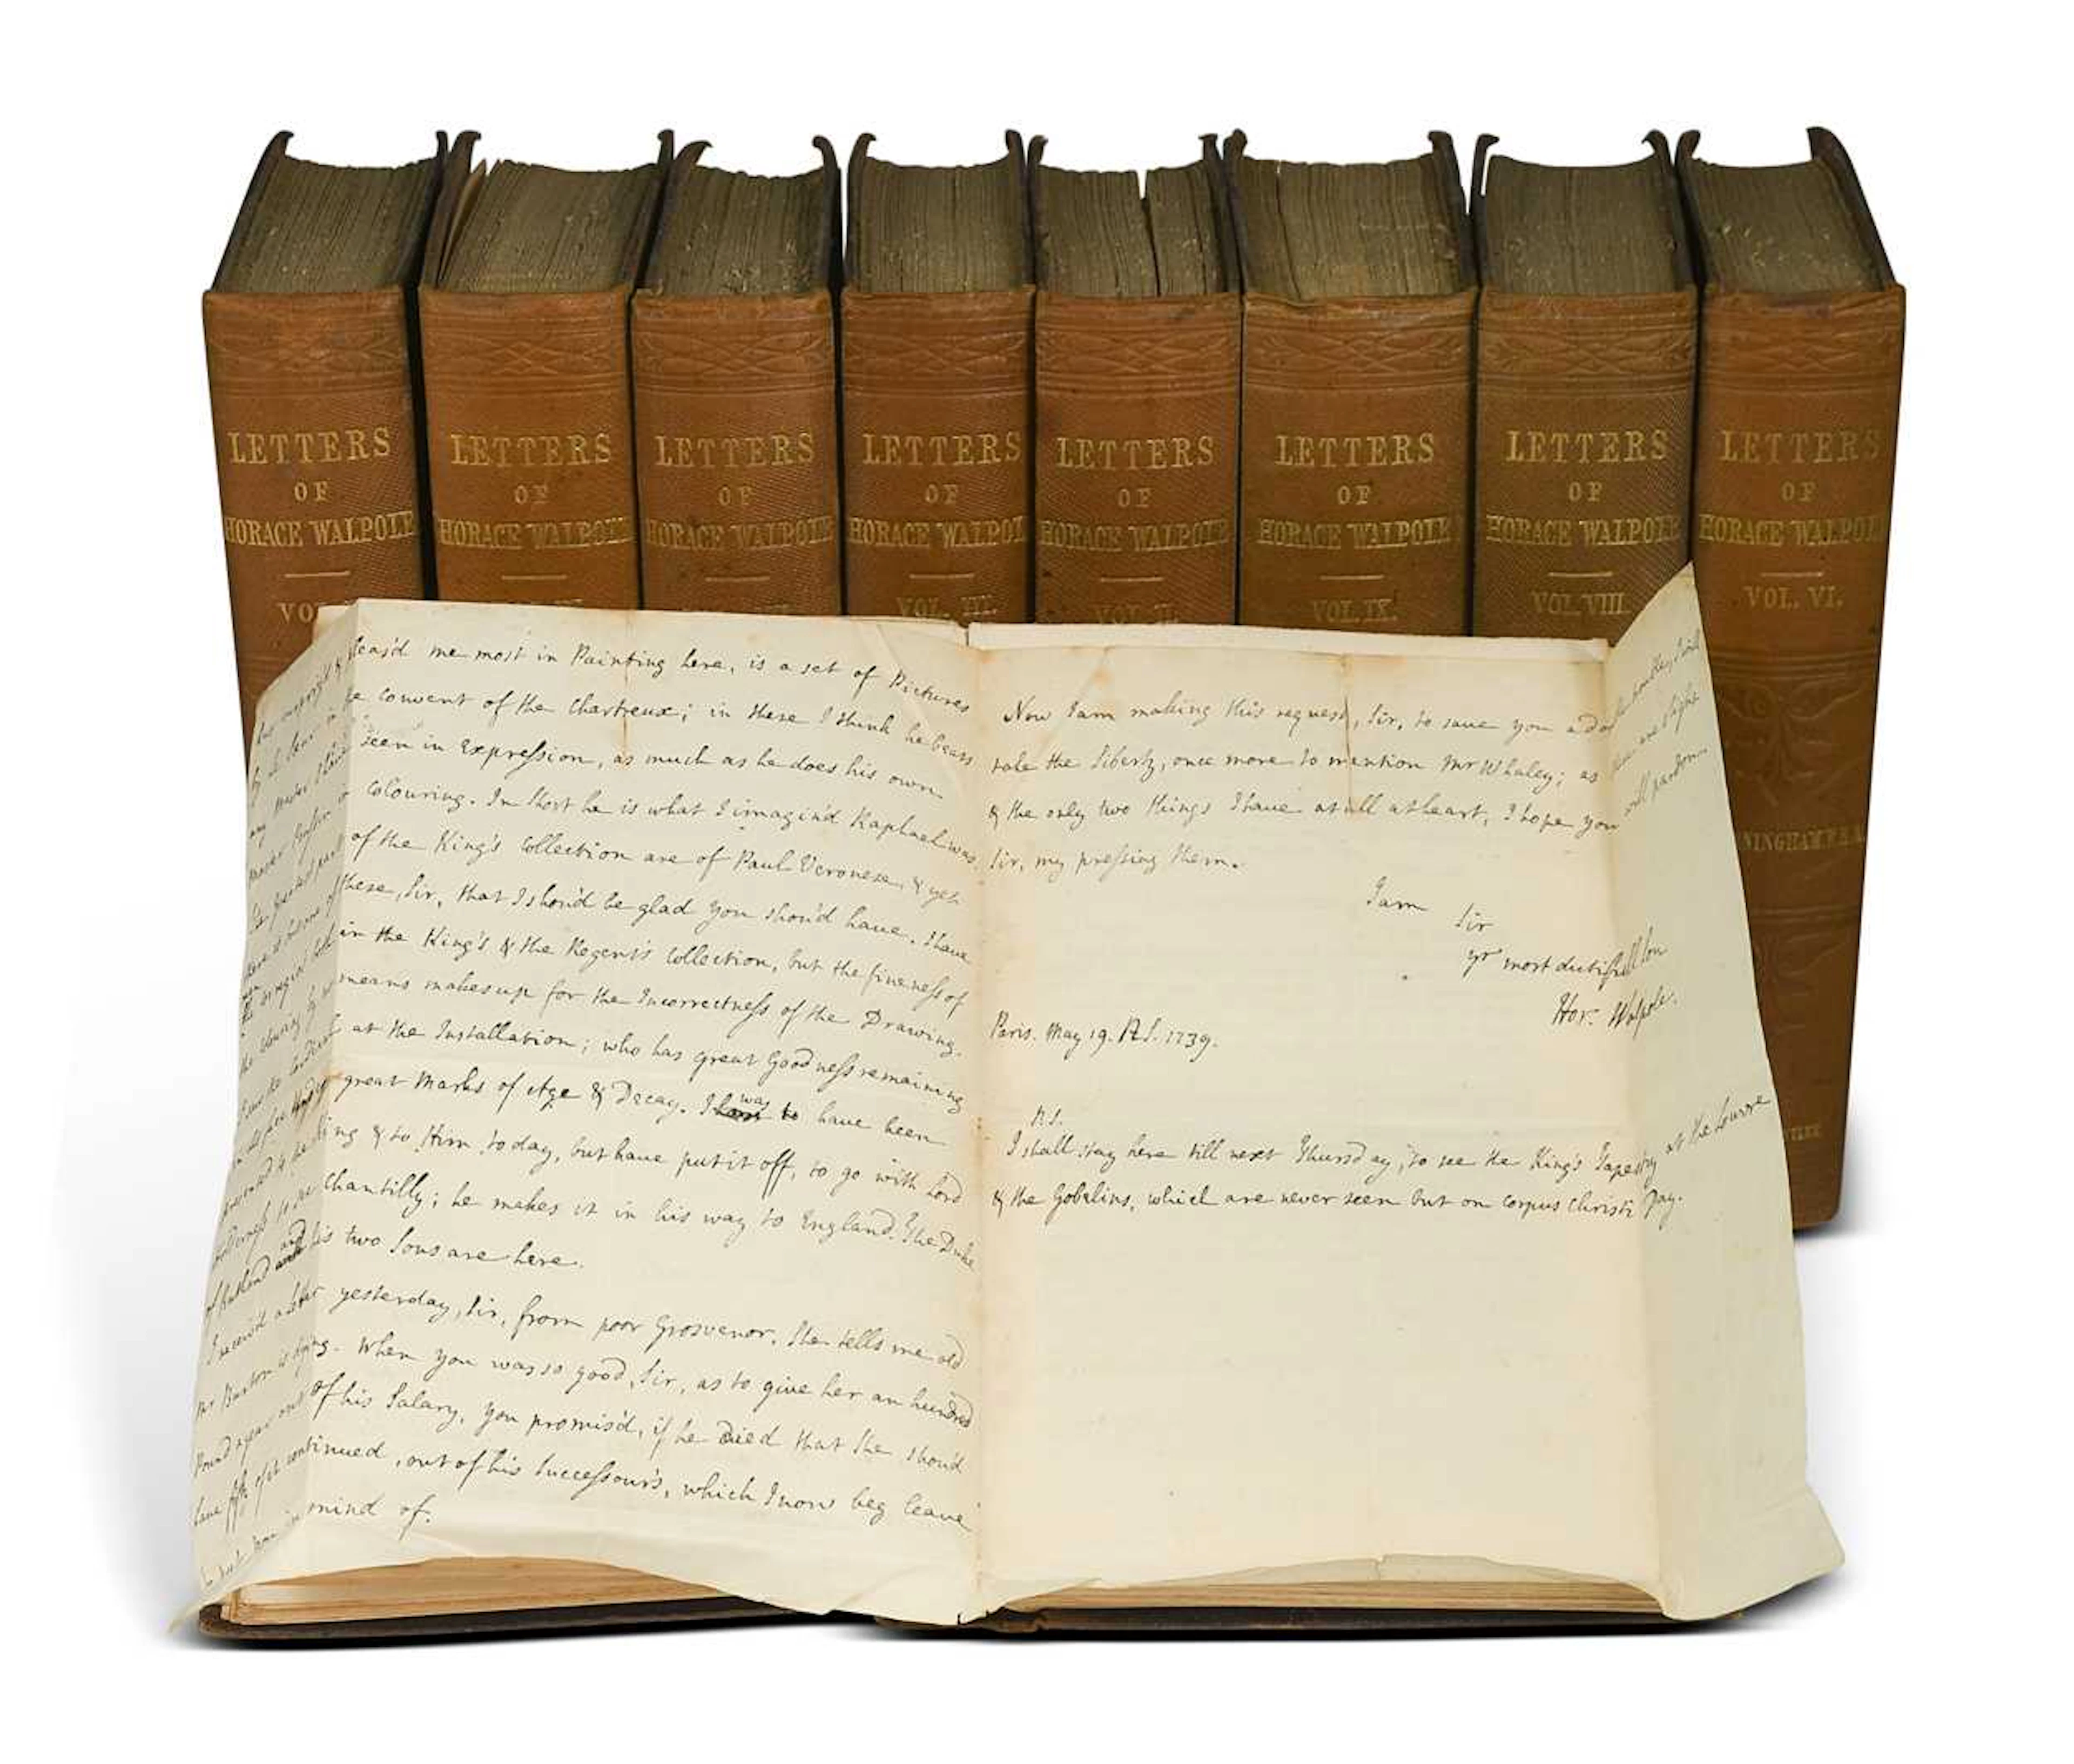 LETTERS
OF
HORACE WALPOLE
VO
LETTERS
OF
HORACE WALPOLE
LETTERS
OF
HORACE WALPOLE
LETTERS
OF
HORACE WALPOL
VOL. III.
LETTERS
OF
HORACE WALPOLE
VOL. II.
LETTERS
OF
HORACE WALPOLE
VOL. IX.
LETTERS
OF
HORACE WALPOLE
VOL. VIII.
LETTERS
OF
HORACE WALPOL
VOL. VI.
NINGHAM, F.S.A.
pleas'd me most in Painting here, is a set of Pictures
convent of the Chartreux; in these I think he bears
seen in Expression, as much as he does his own
colouring. In short he is what I imagin'd Raphael was
of the King's Collection are of Paul Veronese, & yet
these, Sir, that I shou'd be glad you shou'd have. I have
in the King's & the Regent's Collection, but the fineness of
the colouring by no means makes up for the Incorrectness of the Drawing.
at the Installation; who has great Goodness remaining
great Marks of Age & Decay. I was to have been
presented to the King & to Him today, but have put it off, to go with Lord
Holderness to see Chantilly; he makes it in his way to England. The Duke
of Rutland and his two Sons are here.
I receiv'd a letter yesterday, Sir, from poor Grosvenor. She tells me old
Mr Burton is dying. When you was so good, Sir, as to give her an hundred
Pound a year out of his Salary, you promis'd, if he died that she shou'd
have fifty of it continued, out of his Successour's, which I now beg leave
to put you in mind of.
Now I am making this request, Sir, to save you a double trouble, I will
take the liberty, once more to mention Mr Whaley; as these are slight
& the only two things I have at all at heart, I hope you will pardon
Sir, my pressing them.
I am
Sir
yr most dutifull Son
Hor: Walpole.
Paris. May 19. N.S. 1739.
P.S.
I shall stay here till next Thursday, to see the King's Tapestry at the Louvre
& the Gobelins, which are never seen but on corpus Christi Day.